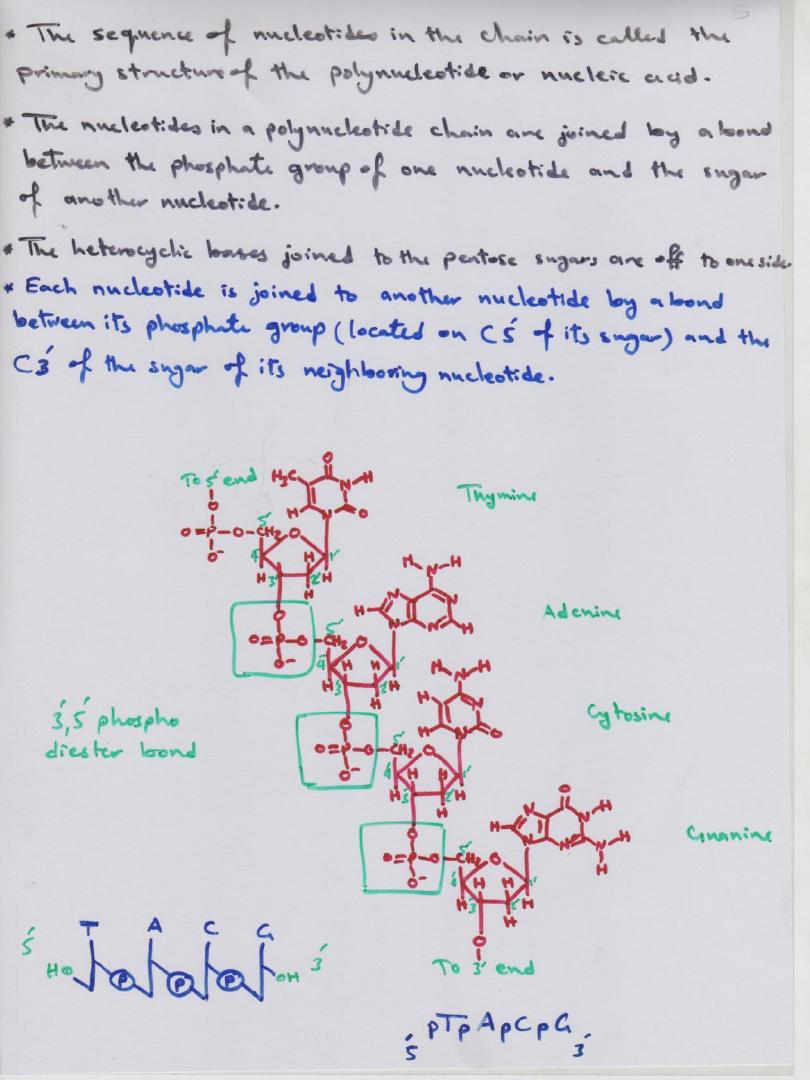 5
* The sequence of nucleotides in the chain is called the
primary structure of the polynucleotide or nucleic acid.
* The nucleotides in a polynucleotide chain are joined by a bond
between the phosphate group of one nucleotide and the sugar
of another nucleotide.
* The heterocyclic bases joined to the pentose sugars are off to one side.
* Each nucleotide is joined to another nucleotide by a bond
between its phosphate group (located on C5́ of its sugar) and the
C3́ of the sugar of its neighboring nucleotide.
To 5́ end
H₃C
O
N-H
H
N
O
Thymine
O
O=P-O-CH₂
O⁻
5́
O
4́
1́
H
H
H
3́
2́
H
H
H-N-H
N
N
H
N
N
H
Adenine
O
O=P-O-CH₂
O⁻
5́
O
4́
1́
H
H
H
3́
2́
H
H
H-N-H
H
N
H
N
O
Cytosine
3́,5́ phospho
diester bond
O
O=P-O-CH₂
O⁻
5́
O
4́
1́
H
H
H
3́
2́
H
H
O
N
N-H
H
N
N
N-H
H
Guanine
O
O=P-O-CH₂
O⁻
5́
O
4́
1́
H
H
H
3́
2́
H
H
O
To 3́ end
T A C G
5́
HO
P P P
OH
3́
5́ pTpApCpG 3́